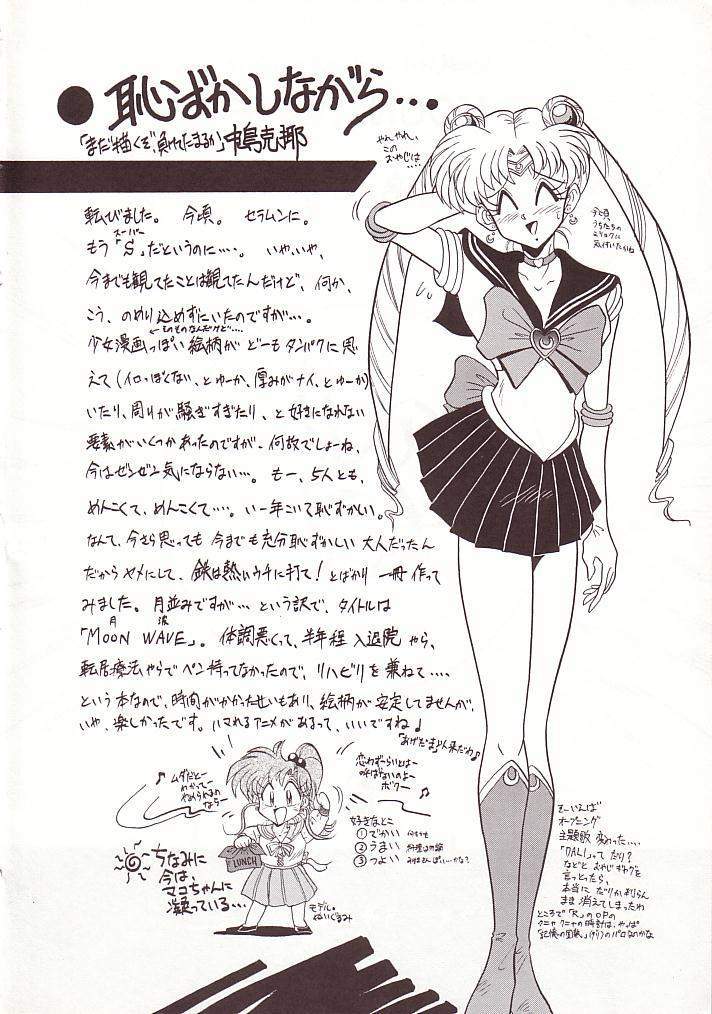 ●恥ずかしながら…
「まだ描くぞ、負けてたまるか」中島克耶
やれやれ、
この
おやじは
…
今頃
うちたちの
ミリョクに
気付いたかね
転びました。今頃。セラムンに。
スーパー
もう「S」だというのに…。いやいや、
今までも観てたことは観てたんだけど、何か、
こう、のめり込めずにいたのですが…。
←ものものなんだけど…
少女漫画っぽい絵柄がどーもタンパクに思
えて(イロっぽくない、とゆーか、厚みがナイ、とゆーか)
いたり、周りが騒ぎすぎたり、と好きになれない
要素がいくつかあったのですが、何故でしょーね、
今はゼンゼン気にならない…。もー、5人とも、
めんこくて、めんこくて…。いー年こいて恥ずかしい。
なんて、今さら思っても今までも充分恥ずかしい大人だったん
だからヤメにして、鉄は熱いウチに打て!とばかり一冊作って
みました。月並みですが…という訳で、タイトルは
月 波
「MOON WAVE」。体調悪くって、半年程入退院やら、
転居療法やらでペン持ってなかったので、リハビリを兼ねて…
という本なので、時間がかかったせいもあり、絵柄が安定してませんが、
いや、楽しかったです。ハマれるアニメがあるって、いいですね♪
「あげだま」以来だわ♪
♪ムダだとー
わかってー
やめられるの
ならー
恋わずらいとはー
呼ばないのよー
ボクー♪
LUNCH
ちなみに
今は、
マコちゃんに
凝っている…
モデル。
ぬいぐるみ
好きなとこ
①でかい
②うまい
③つよい
そーいえば
オープニング
主題歌 変わった…
「DALI」ってだり?
などとおやじギャグを
言っとったら、
本当に
まま消えてしまったわ
ところで「R」のOPの
クニャクニャの時計は、やっぱ
「記憶の固執」(ダリ)のパロなのかな